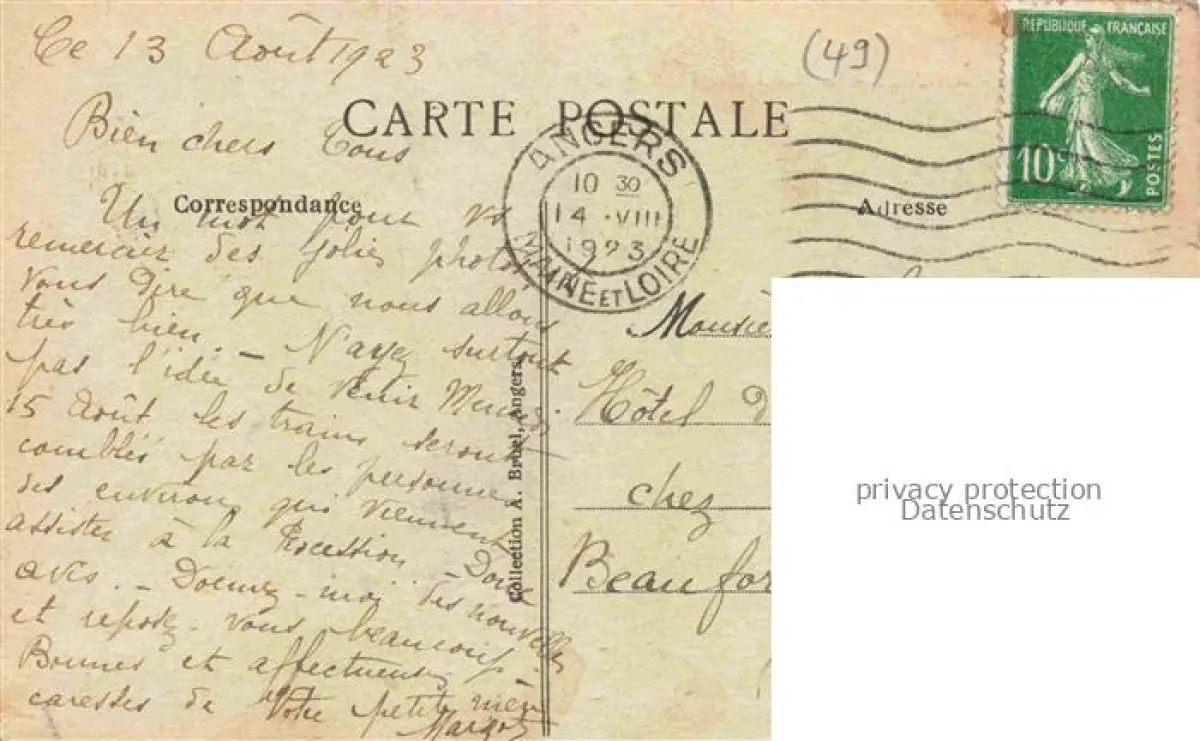 Ce 13 Août 1923
(49)
REPUBLIQUE FRANÇAISE
10c
POSTES
CARTE POSTALE
ANGERS
10 30
14 -VIII
1923
MAINE ET LOIRE
Bien chers Tous
Correspondance
Adresse
Un mot pour vs
remercier des jolies photos,
vous dire que nous allons
très bien. - N'ayez surtout
pas l'idée de venir
15 Août les trains seront
comblés par les personnes
des environs qui viennent
assister à la Procession - Donc
avis. - Donnez-moi des nouvelles
et reposez-vous beaucoup -
Bonnes et affectueuses
caresses de Votre petite
Margot
Collection A. Bruel, Angers
Hôtel
chez
privacy protection
Datenschutz